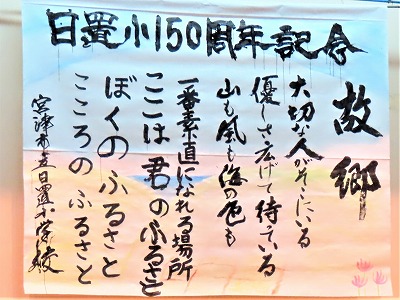 日置小150周年記念
故郷
大切な人がそこにいる
優しさ広げて待っている
山も風も海の色も
一番素直になれる場所
ここは君のふるさと
ぼくのふるさと
こころのふるさと
宮津市立日置小学校